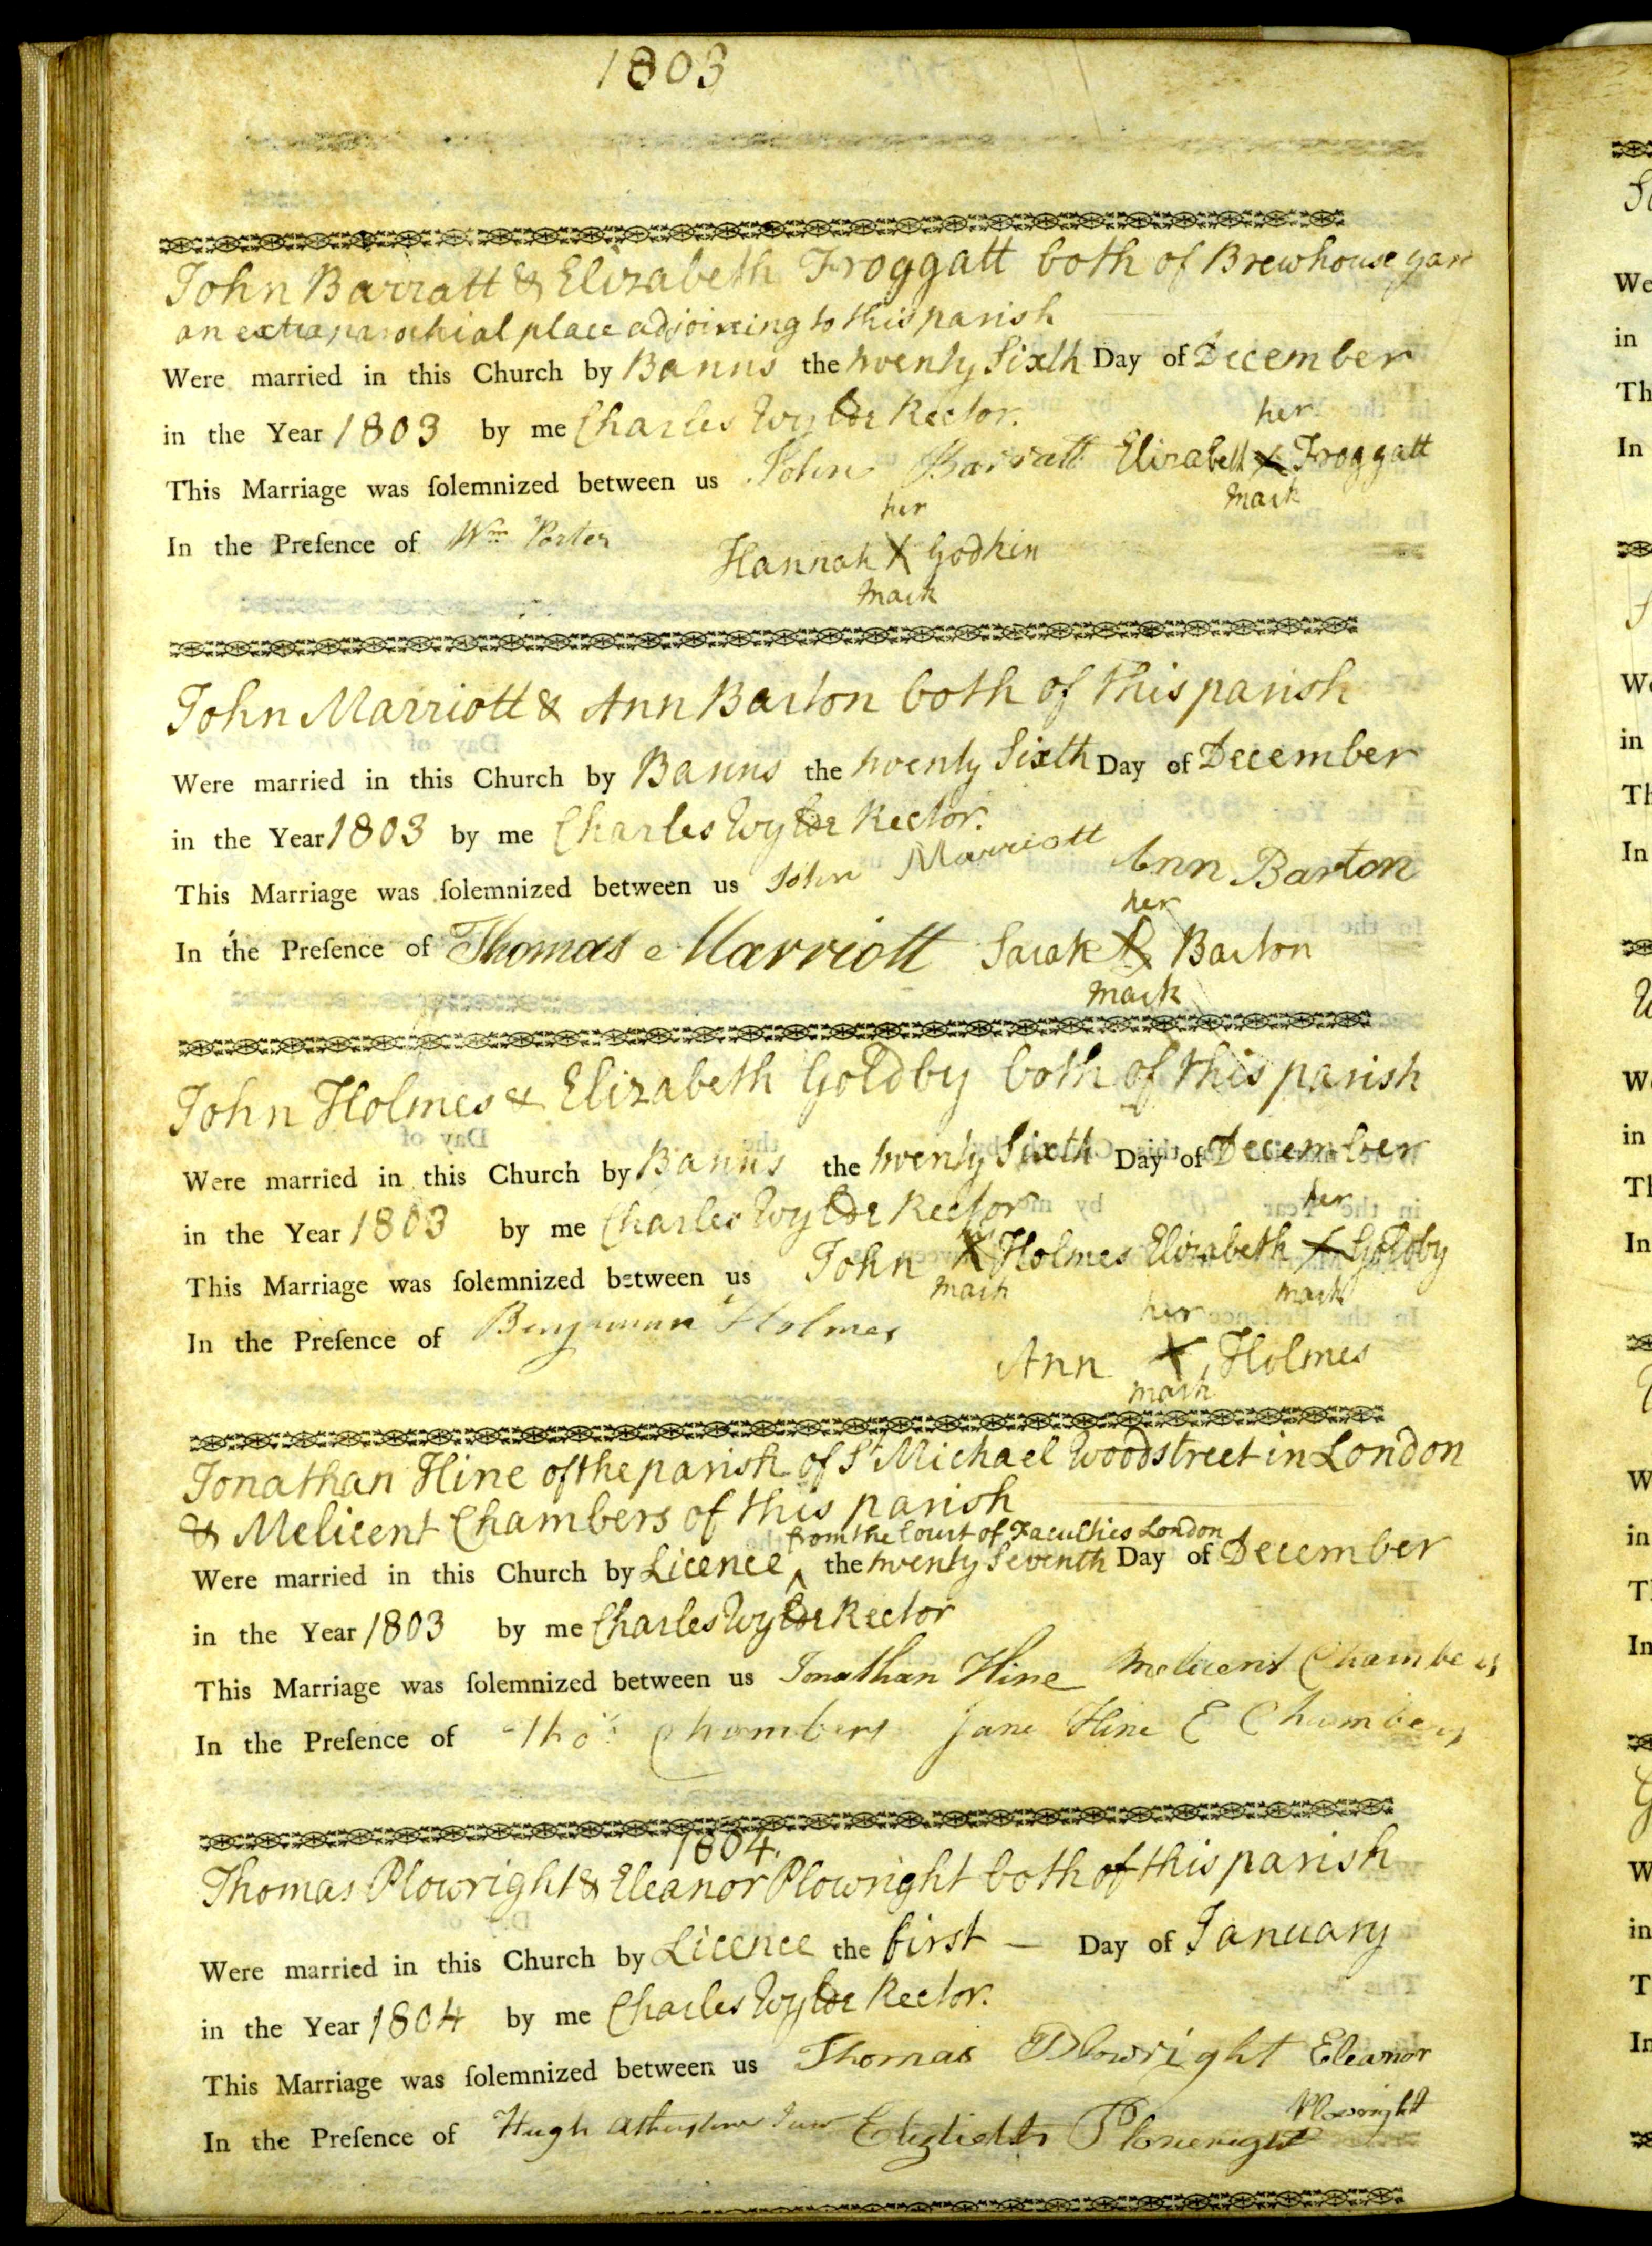 1803
John Barratt & Elizabeth Froggatt both of Brewhouse yard
an extraparochial place adjoining to this parish
Were married in this Church by Banns the twenty Sixth Day of December
in the Year 1803 by me Charles Wylde Rector.
her
This Marriage was ſolemnized between us John Barratt Elizabeth X Froggatt
her mark
In the Preſence of Wm Porter Hannah X Godkin
mark
John Marriott & Ann Barton both of this parish
Were married in this Church by Banns the twenty Sixth Day of December
in the Year 1803 by me Charles Wylde Rector.
This Marriage was ſolemnized between us John Marriott Ann Barton
her
In the Preſence of Thomas Marriott Sarah X Barton
mark
John Holmes & Elizabeth Goldby both of this parish
Were married in this Church by Banns the twenty Sixth Day of December
in the Year 1803 by me Charles Wylde Rector
his her
This Marriage was ſolemnized between us John X Holmes Elizabeth X Goldby
mark mark
her
In the Preſence of Benjamin Holmes Ann X Holmes
mark
Jonathan Hine of the parish of St Michael Woodstreet in London
& Melicent Chambers of this parish
from the Court of Faculties London
Were married in this Church by Licence ^ the twenty Seventh Day of December
in the Year 1803 by me Charles Wylde Rector
This Marriage was ſolemnized between us Jonathan Hine Melicent Chambers
In the Preſence of Thos Chambers Jane Hine E Chambers
1804.
Thomas Plowright & Eleanor Plowright both of this parish
Were married in this Church by Licence the first — Day of January
in the Year 1804 by me Charles Wylde Rector.
This Marriage was ſolemnized between us Thomas Plowright Eleanor
Plowright
In the Preſence of Hugh Atherstone Junr Elizabeth Plowright